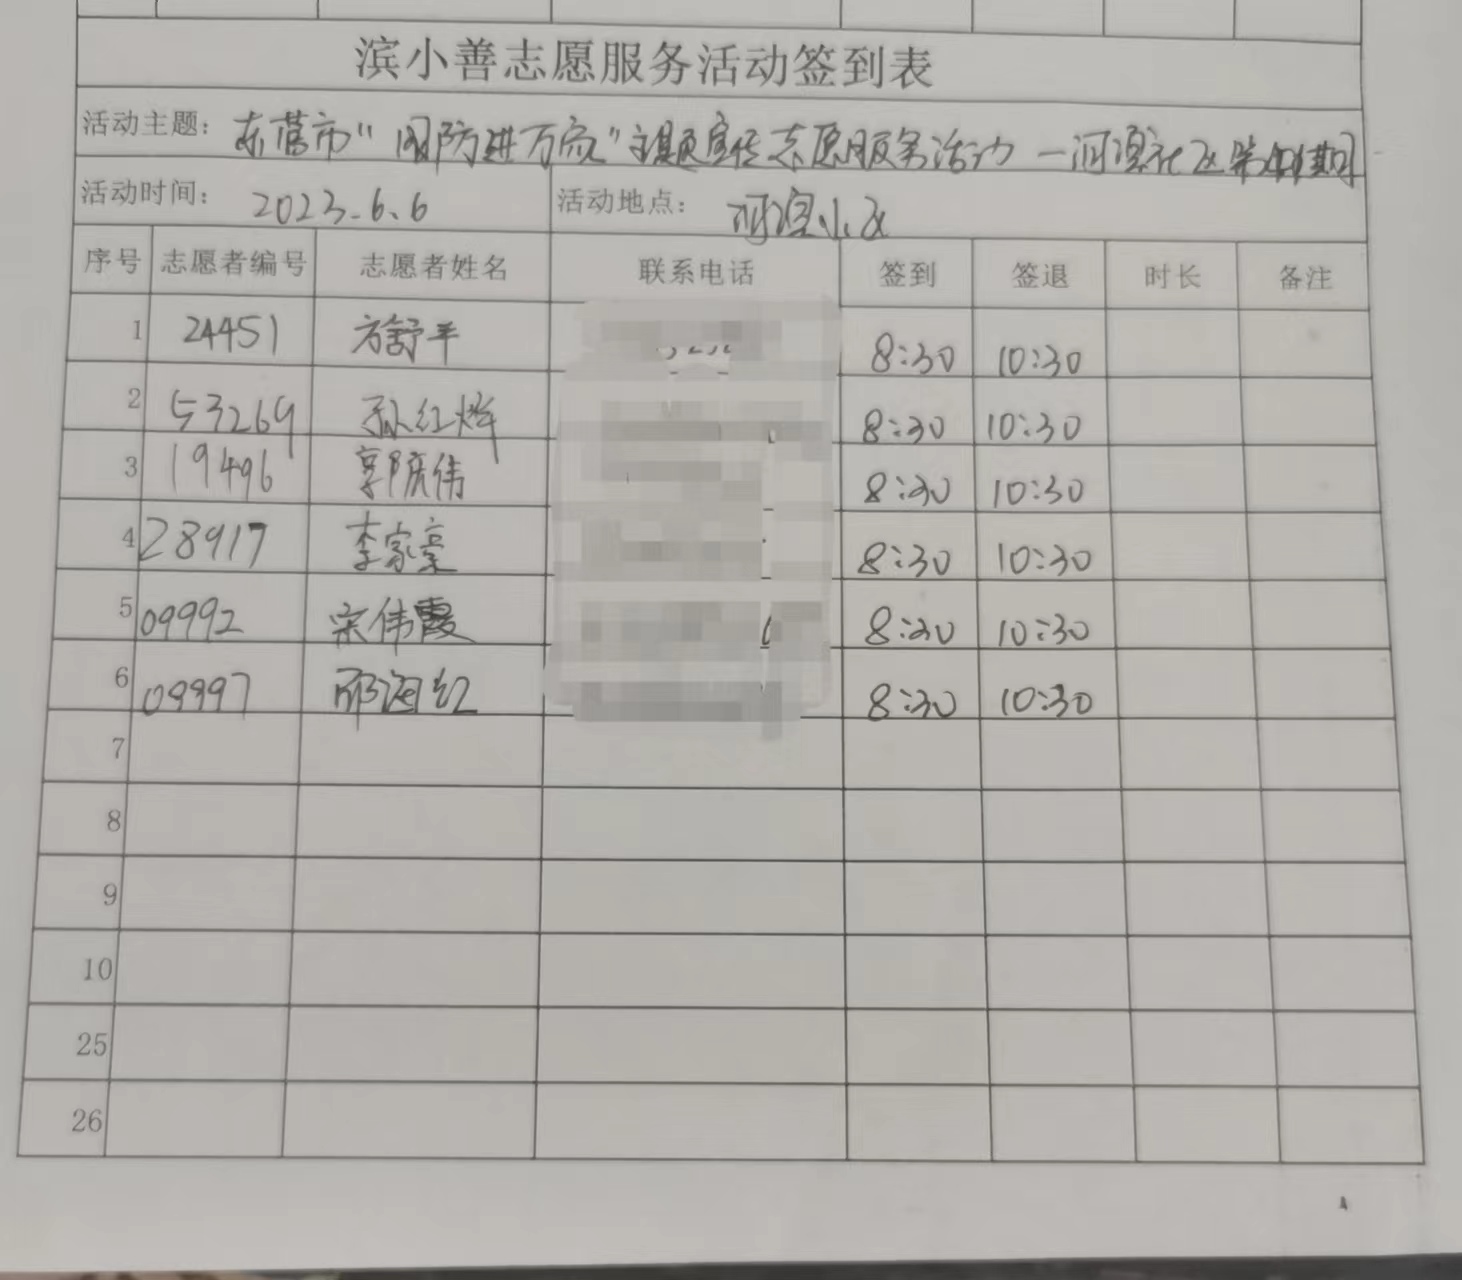 滨小善志愿服务活动签到表
活动主题: 东营市"国防进万家"主题宣传志愿服务活动—河滨社区第 期
活动时间: 2023.6.6 活动地点: 河滨小区
序号 志愿者编号 志愿者姓名 联系电话 签到 签退 时长 备注
1 24451 方舒平 8:30 10:30
2 53269 孙红烨 8:30 10:30
3 19496 郭庆伟 8:30 10:30
4 28917 李家豪 8:30 10:30
5 09992 宋伟霞 8:30 10:30
6 09997 邱海红 8:30 10:30
7
8
9
10
25
26